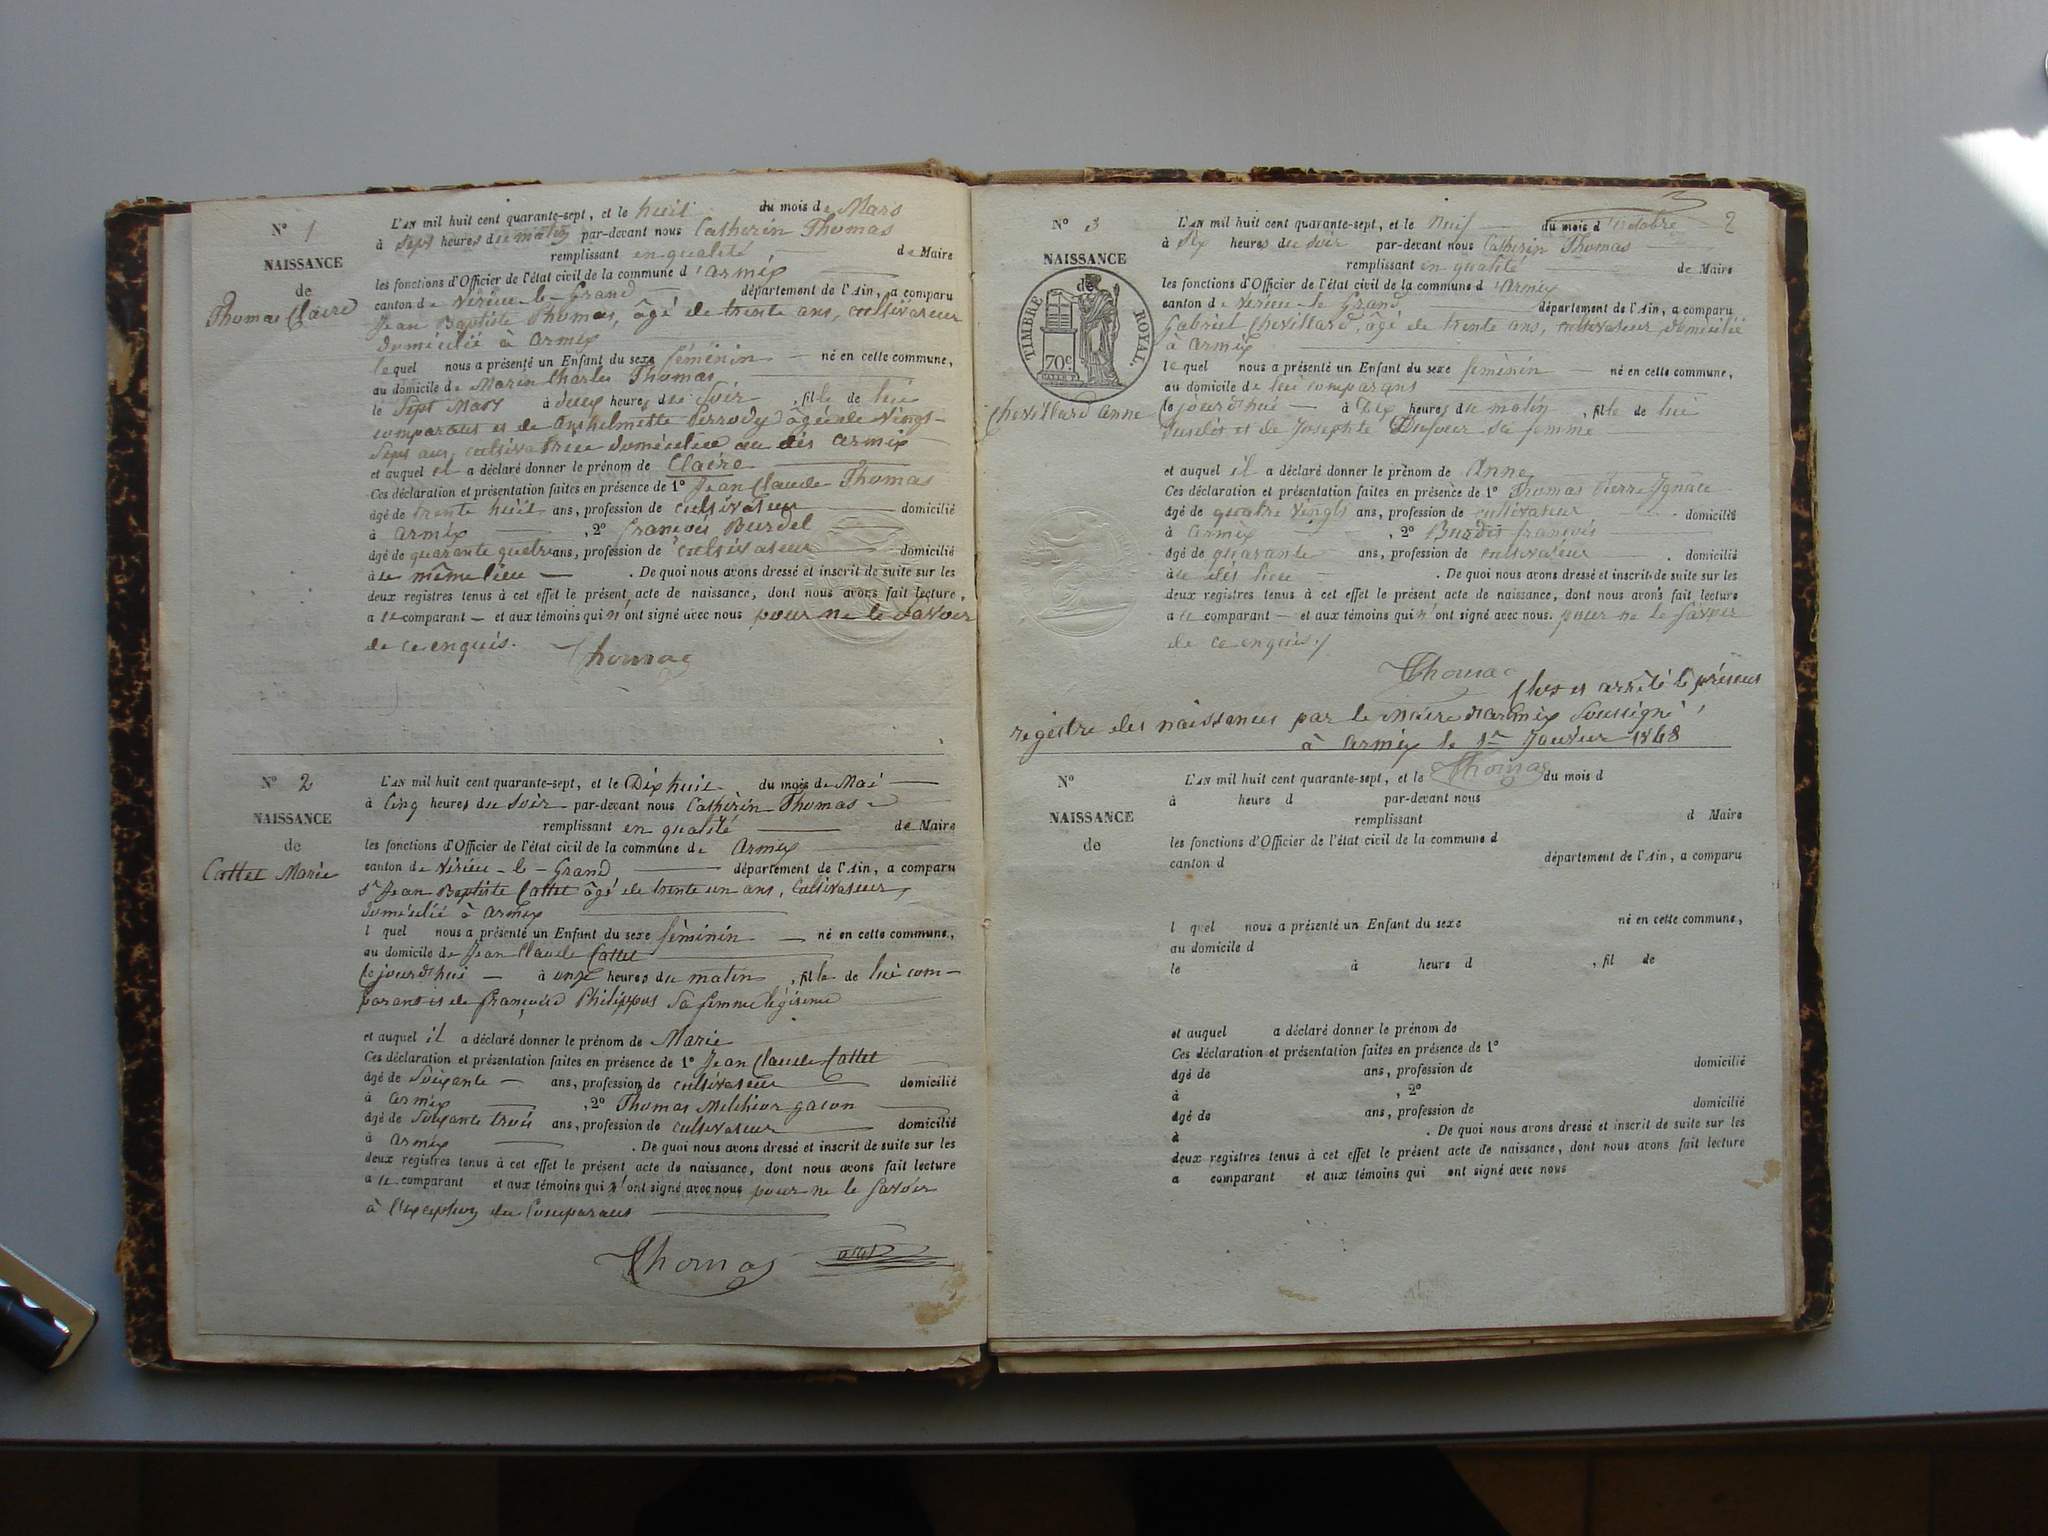 N° 1
NAISSANCE
de
Thomas Claire
L'AN mil huit cent quarante-sept, et le huit du mois de Mars
à sept heures du matin par-devant nous Catherin Thomas
remplissant en qualité de Maire
les fonctions d'Officier de l'état civil de la commune d'armix
canton de Virieu-le-Grand département de l'Ain, a comparu
Jean Baptiste Thomas, âgé de trente ans, cultivateur
domicilié à armix
lequel nous a présenté un Enfant du sexe féminin né en cette commune,
au domicile de Marin Charles Thomas
le sept Mars à deux heures du soir, fille de lui
comparant et de Anthelmette Perrody âgée de vingt-
sept ans, cultivatrice domiciliée au dit armix
et auquel il a déclaré donner le prénom de Claire
Ces déclaration et présentation faites en présence de 1° Jean Claude Thomas
âgé de trente huit ans, profession de cultivateur domicilié
à armix, 2° François Burdel
âgé de quarante quatre ans, profession de cultivateur domicilié
à le même lieu. De quoi nous avons dressé et inscrit de suite sur les
deux registres tenus à cet effet le présent acte de naissance, dont nous avons fait lecture,
a le comparant et aux témoins qui n'ont signé avec nous pour ne le savoir
de ce enquis.
Thomas
N° 2
NAISSANCE
de
Cattet Marie
L'AN mil huit cent quarante-sept, et le Dix huit du mois de Mai
à Cinq heures du soir par-devant nous Catherin Thomas
remplissant en qualité de Maire
les fonctions d'Officier de l'état civil de la commune de Armix
canton de Virieu-le-Grand département de l'Ain, a comparu
Sr Jean Baptiste Cattet âgé de trente un ans, Cultivateur,
domicilié à armix
l quel nous a présenté un Enfant du sexe féminin né en cette commune,
au domicile de Jean Claude Cattet
le jourd'hui à onze heures du matin, fille de lui com-
parant et de françoise Philippus sa femme légitime
et auquel il a déclaré donner le prénom de Marie
Ces déclaration et présentation faites en présence de 1° Jean Claude Cattet
âgé de soixante ans, profession de cultivateur domicilié
à armix, 2° Thomas Melchior gacon
âgé de soixante trois ans, profession de cultivateur domicilié
à armix. De quoi nous avons dressé et inscrit de suite sur les
deux registres tenus à cet effet le présent acte de naissance, dont nous avons fait lecture
a le comparant et aux témoins qui n'ont signé avec nous pour ne le savoir
à l'exception du Comparant
Thomas
2
N° 3
NAISSANCE
de
TIMBRE ROYAL.
70c
Chevillard anne
L'AN mil huit cent quarante-sept, et le Neuf du mois d'octobre
à six heures du soir par-devant nous Catherin Thomas
remplissant en qualité de Maire
les fonctions d'Officier de l'état civil de la commune d'Armix
canton de Virieu-le Grand département de l'Ain, a comparu
Gabriel Chevillard, âgé de trente ans, cultivateur domicilié
à armix
lequel nous a présenté un Enfant du sexe féminin né en cette commune,
au domicile de lui comparant
le jourd'hui à Dix heures du matin, fille de lui
susdit et de Josephte Dufour sa femme
et auquel il a déclaré donner le prénom de Anne
Ces déclaration et présentation faites en présence de 1° Thomas Pierre Ignace
âgé de quatre vingts ans, profession de cultivateur domicilié
à armix, 2° Burdet françois
âgé de quarante ans, profession de cultivateur. domicilié
à le dit lieu. De quoi nous avons dressé et inscrit de suite sur les
deux registres tenus à cet effet le présent acte de naissance, dont nous avons fait lecture
a le comparant et aux témoins qui n'ont signé avec nous. pour ne le savoir
de ce enquis./
Thomas
Clos et arrêté le présent
registre des naissances par le maire d'armix soussigné,
à armix le 1er Janvier 1848
Thomas
N°
NAISSANCE
de
L'AN mil huit cent quarante-sept, et le du mois d
à heure d par-devant nous
remplissant d Maire
les fonctions d'Officier de l'état civil de la commune d
canton d département de l'Ain, a comparu
l quel nous a présenté un Enfant du sexe né en cette commune,
au domicile d
le à heure d, fil de
et auquel a déclaré donner le prénom de
Ces déclaration et présentation faites en présence de 1°
âgé de ans, profession de domicilié
à, 2°
âgé de ans, profession de domicilié
à. De quoi nous avons dressé et inscrit de suite sur les
deux registres tenus à cet effet le présent acte de naissance, dont nous avons fait lecture
a comparant et aux témoins qui ont signé avec nous